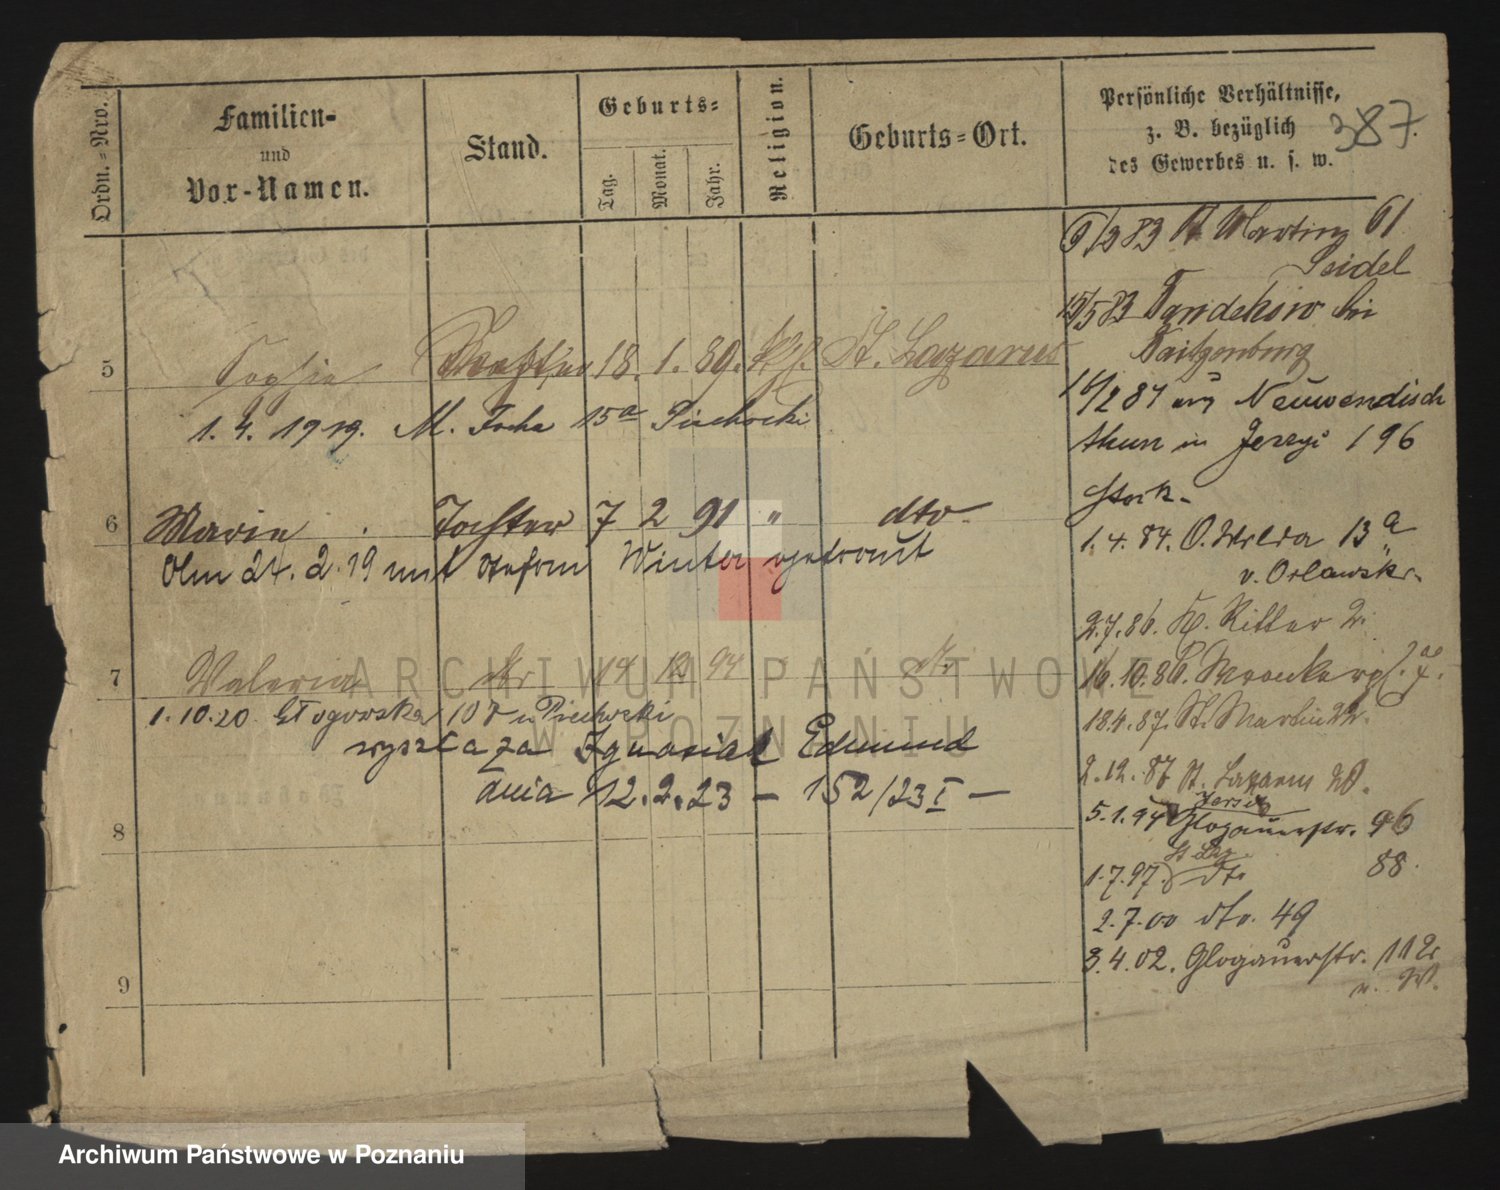 Ordn.=Nro.
Familien-
und
Vor-Namen.
Stand.
Geburts=
Tag.
Monat.
Jahr.
Religion.
Geburts=Ort.
Persönliche Verhältnisse,
z. B. bezüglich
des Gewerbes u. s. w.
387.
5
Sophie Tochter 18. 1. 89. kth. St. Lazarus
1. 4. 1919. M. 15a Piechocki
6
Marie Tochter 7 2 91 " dto
Am 24. 2. 19 mit Stefan Winter getraut
7
Valeria dto 14 12 94 dto.
1.10.20 Głogowska 108 u Piechocki
wyszła za Ignasiak Edmund
dnia 12.2.23 — 152/23 I —
8
9
6/3 83 St. Martin 61
Seidel
15/5 83 bei
16/2 84 Neuwendisch
thun in Jerzyi 196
1.4.84. O. Wilda 13a
v. Orlawski.
2.7.86. Kl. Ritter 2.
16.10.86. 7.
18.4.87. St. Martin 22.
2.12.87 St. Lazarus 20.
Jersitz
5.1.94 Glogauerstr. 96
St Laz.
1.7.97. dto 88.
2.7.00 dto. 49
3.4.02. Glogauerstr. 112
n. W.
ARCHIWUM PAŃSTWOWE
W POZNANIU
Archiwum Państwowe w Poznaniu